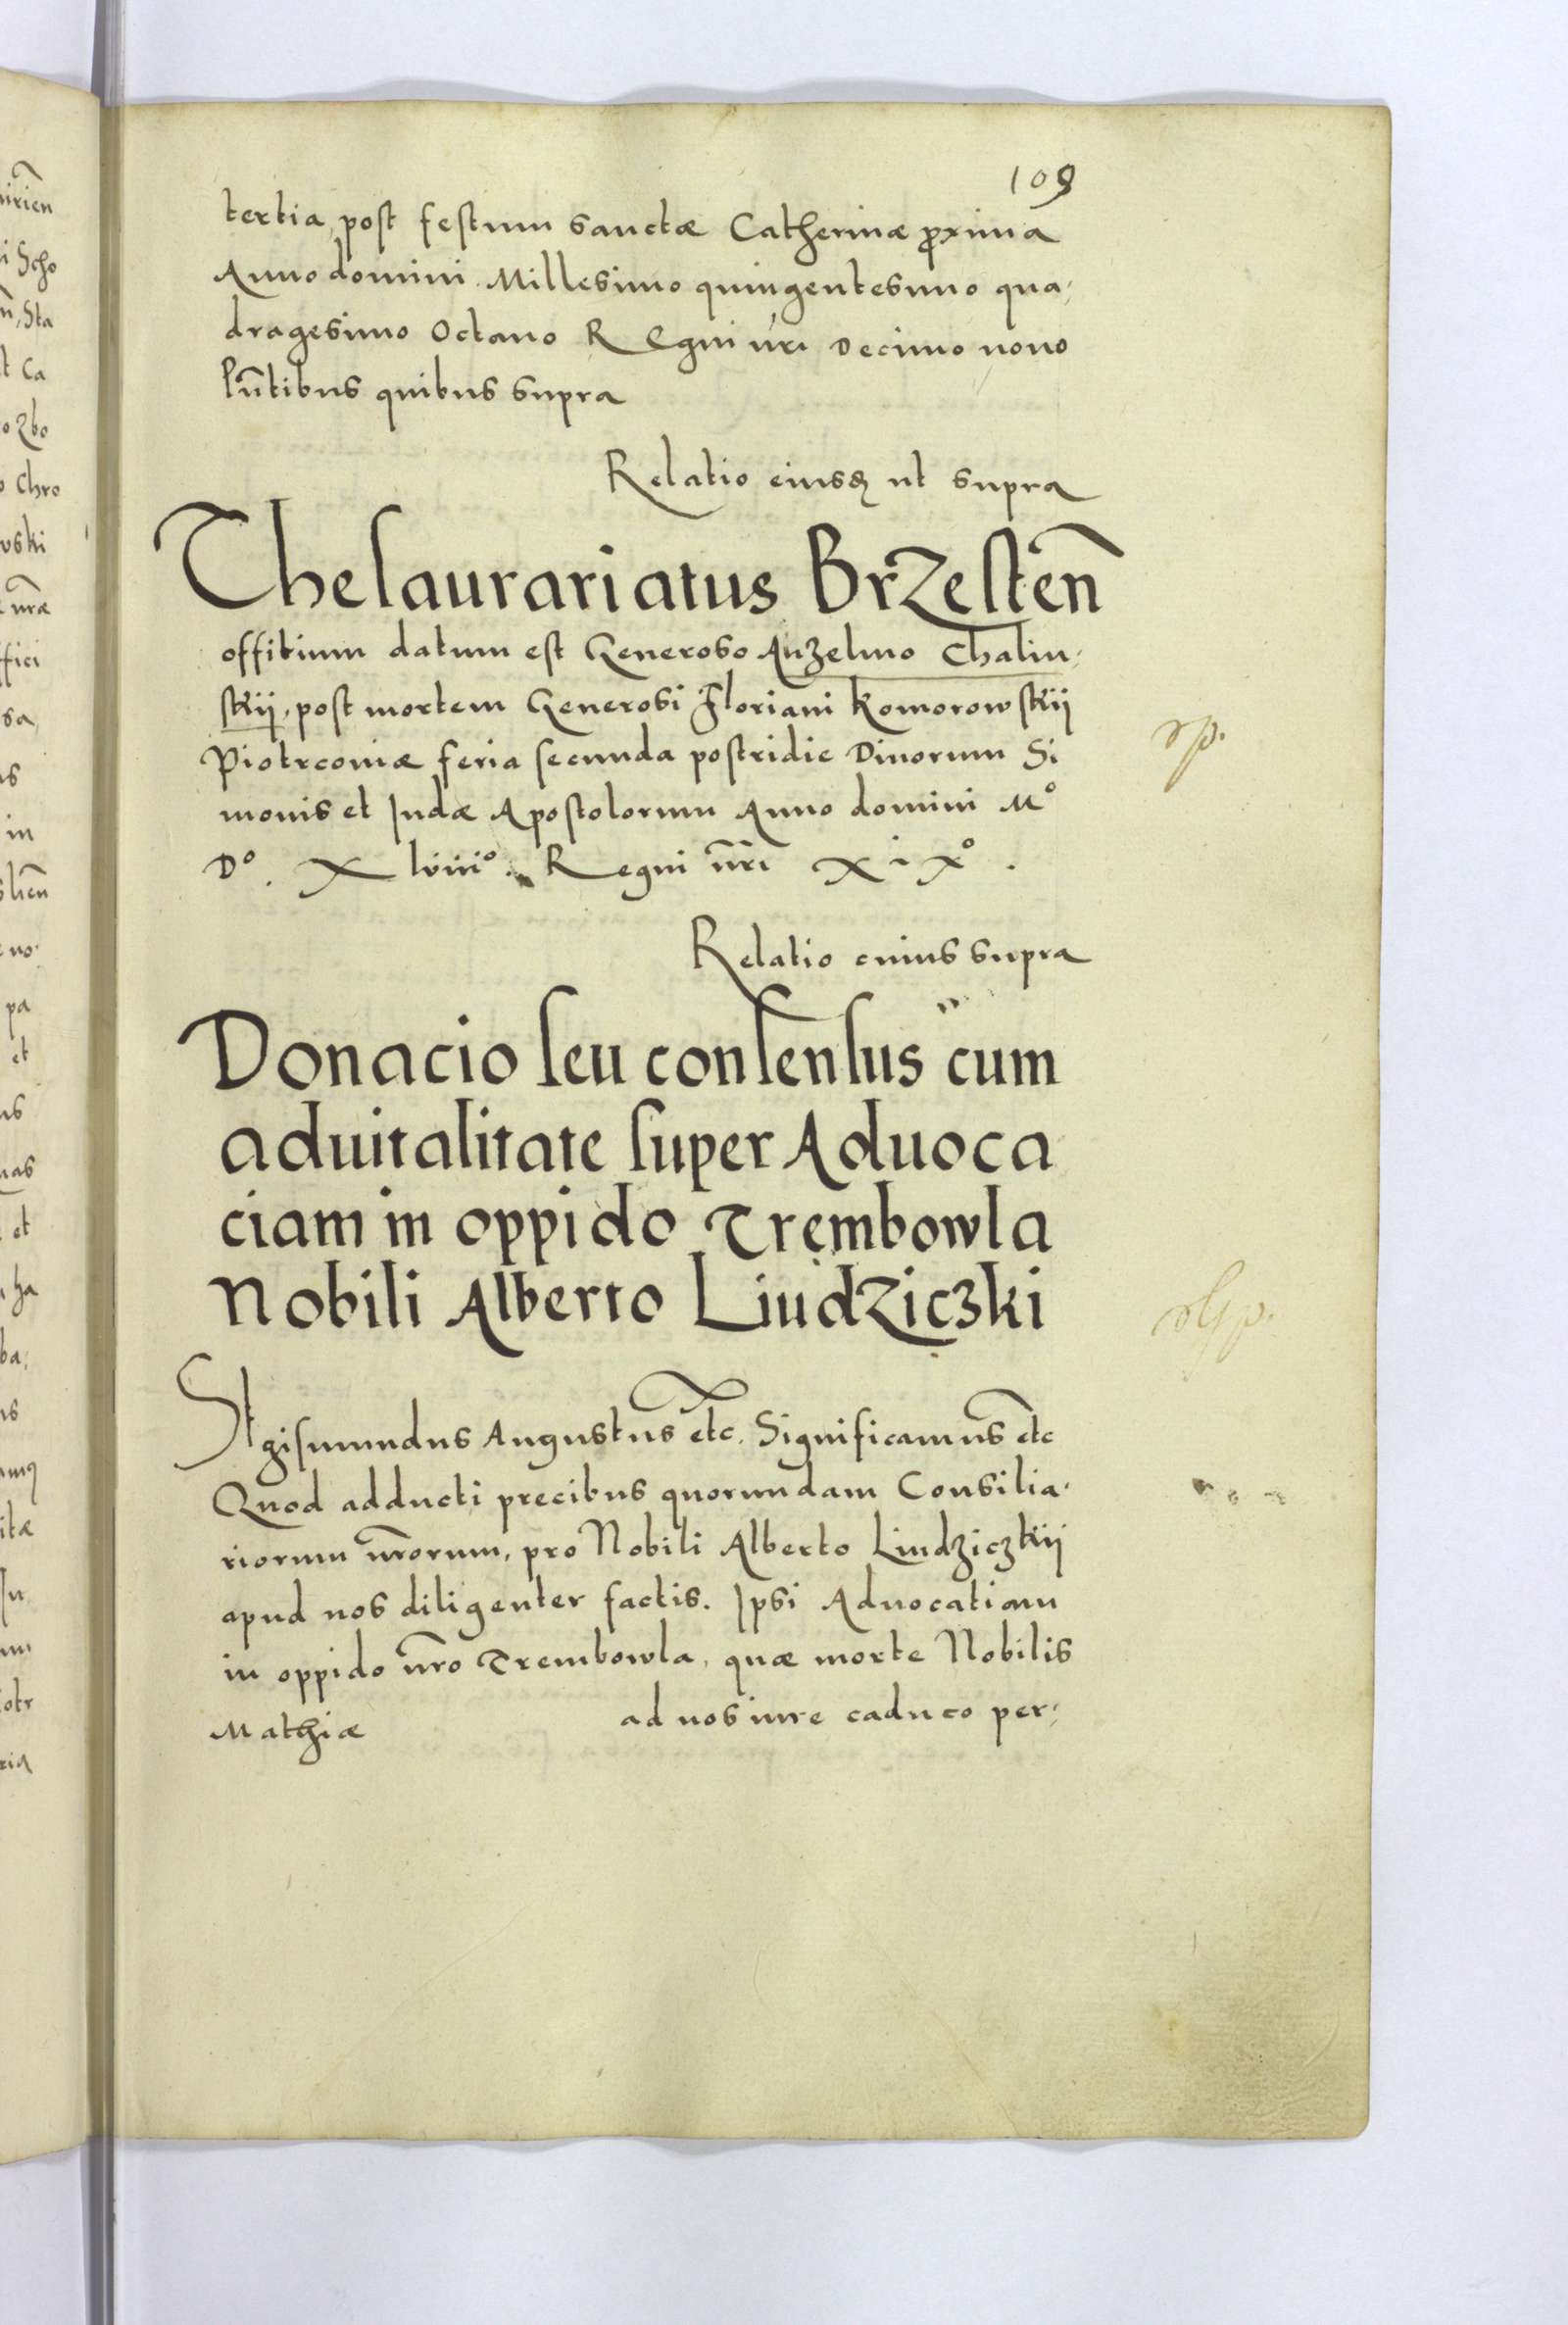 109
tertia, post festum sanctæ Catherinæ proxima
Anno domini Millesimo quingentesimo qua-
dragesimo Octavo REgni nri Decimo nono
Pntibus quibus supra
Relatio eiusdem ut supra
Thesaurariatus Brzesten
offitium datum est Generoso Anzelmo Chalin-
skij, post mortem Generosi Floriani Komorowskij
Piotrcoviæ feria secunda postridie Divorum Si
monis et Judæ Apostolorum Anno domini M°
D°. Xlviii°. Regni nri xix°.
Relatio cuius supra
Donacio seu consensus cum
aduitalitate super Aduoca
ciam in oppido Trembowla
Nobili Alberto Liudziczki
Sigismundus Augustus etc. Significamus etc
Quod adducti precibus quorundam Consilia-
riorum nrorum, pro Nobili Alberto Liudziczkij
apud nos diligenter factis. Ipsi Aduocatiam
in oppido nro Trembowla, quæ morte Nobilis
Mathiæ ad nos iure caduco per-